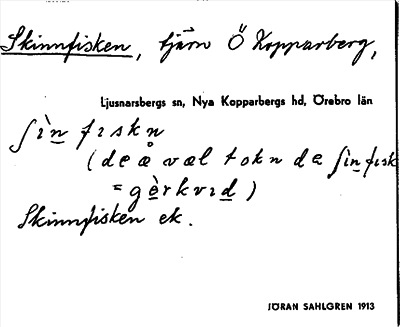 Skinnfisken, tjärn Ö Kopparberg,
Ljusnarsbergs sn, Nya Kopparbergs hd, Örebro län
ʃìn fɪskn̥
(de æ væl tokn de ʃìn fɪsk
= gèrkvɪd)
Skinnfisken ek.
JÖRAN SAHLGREN 1913